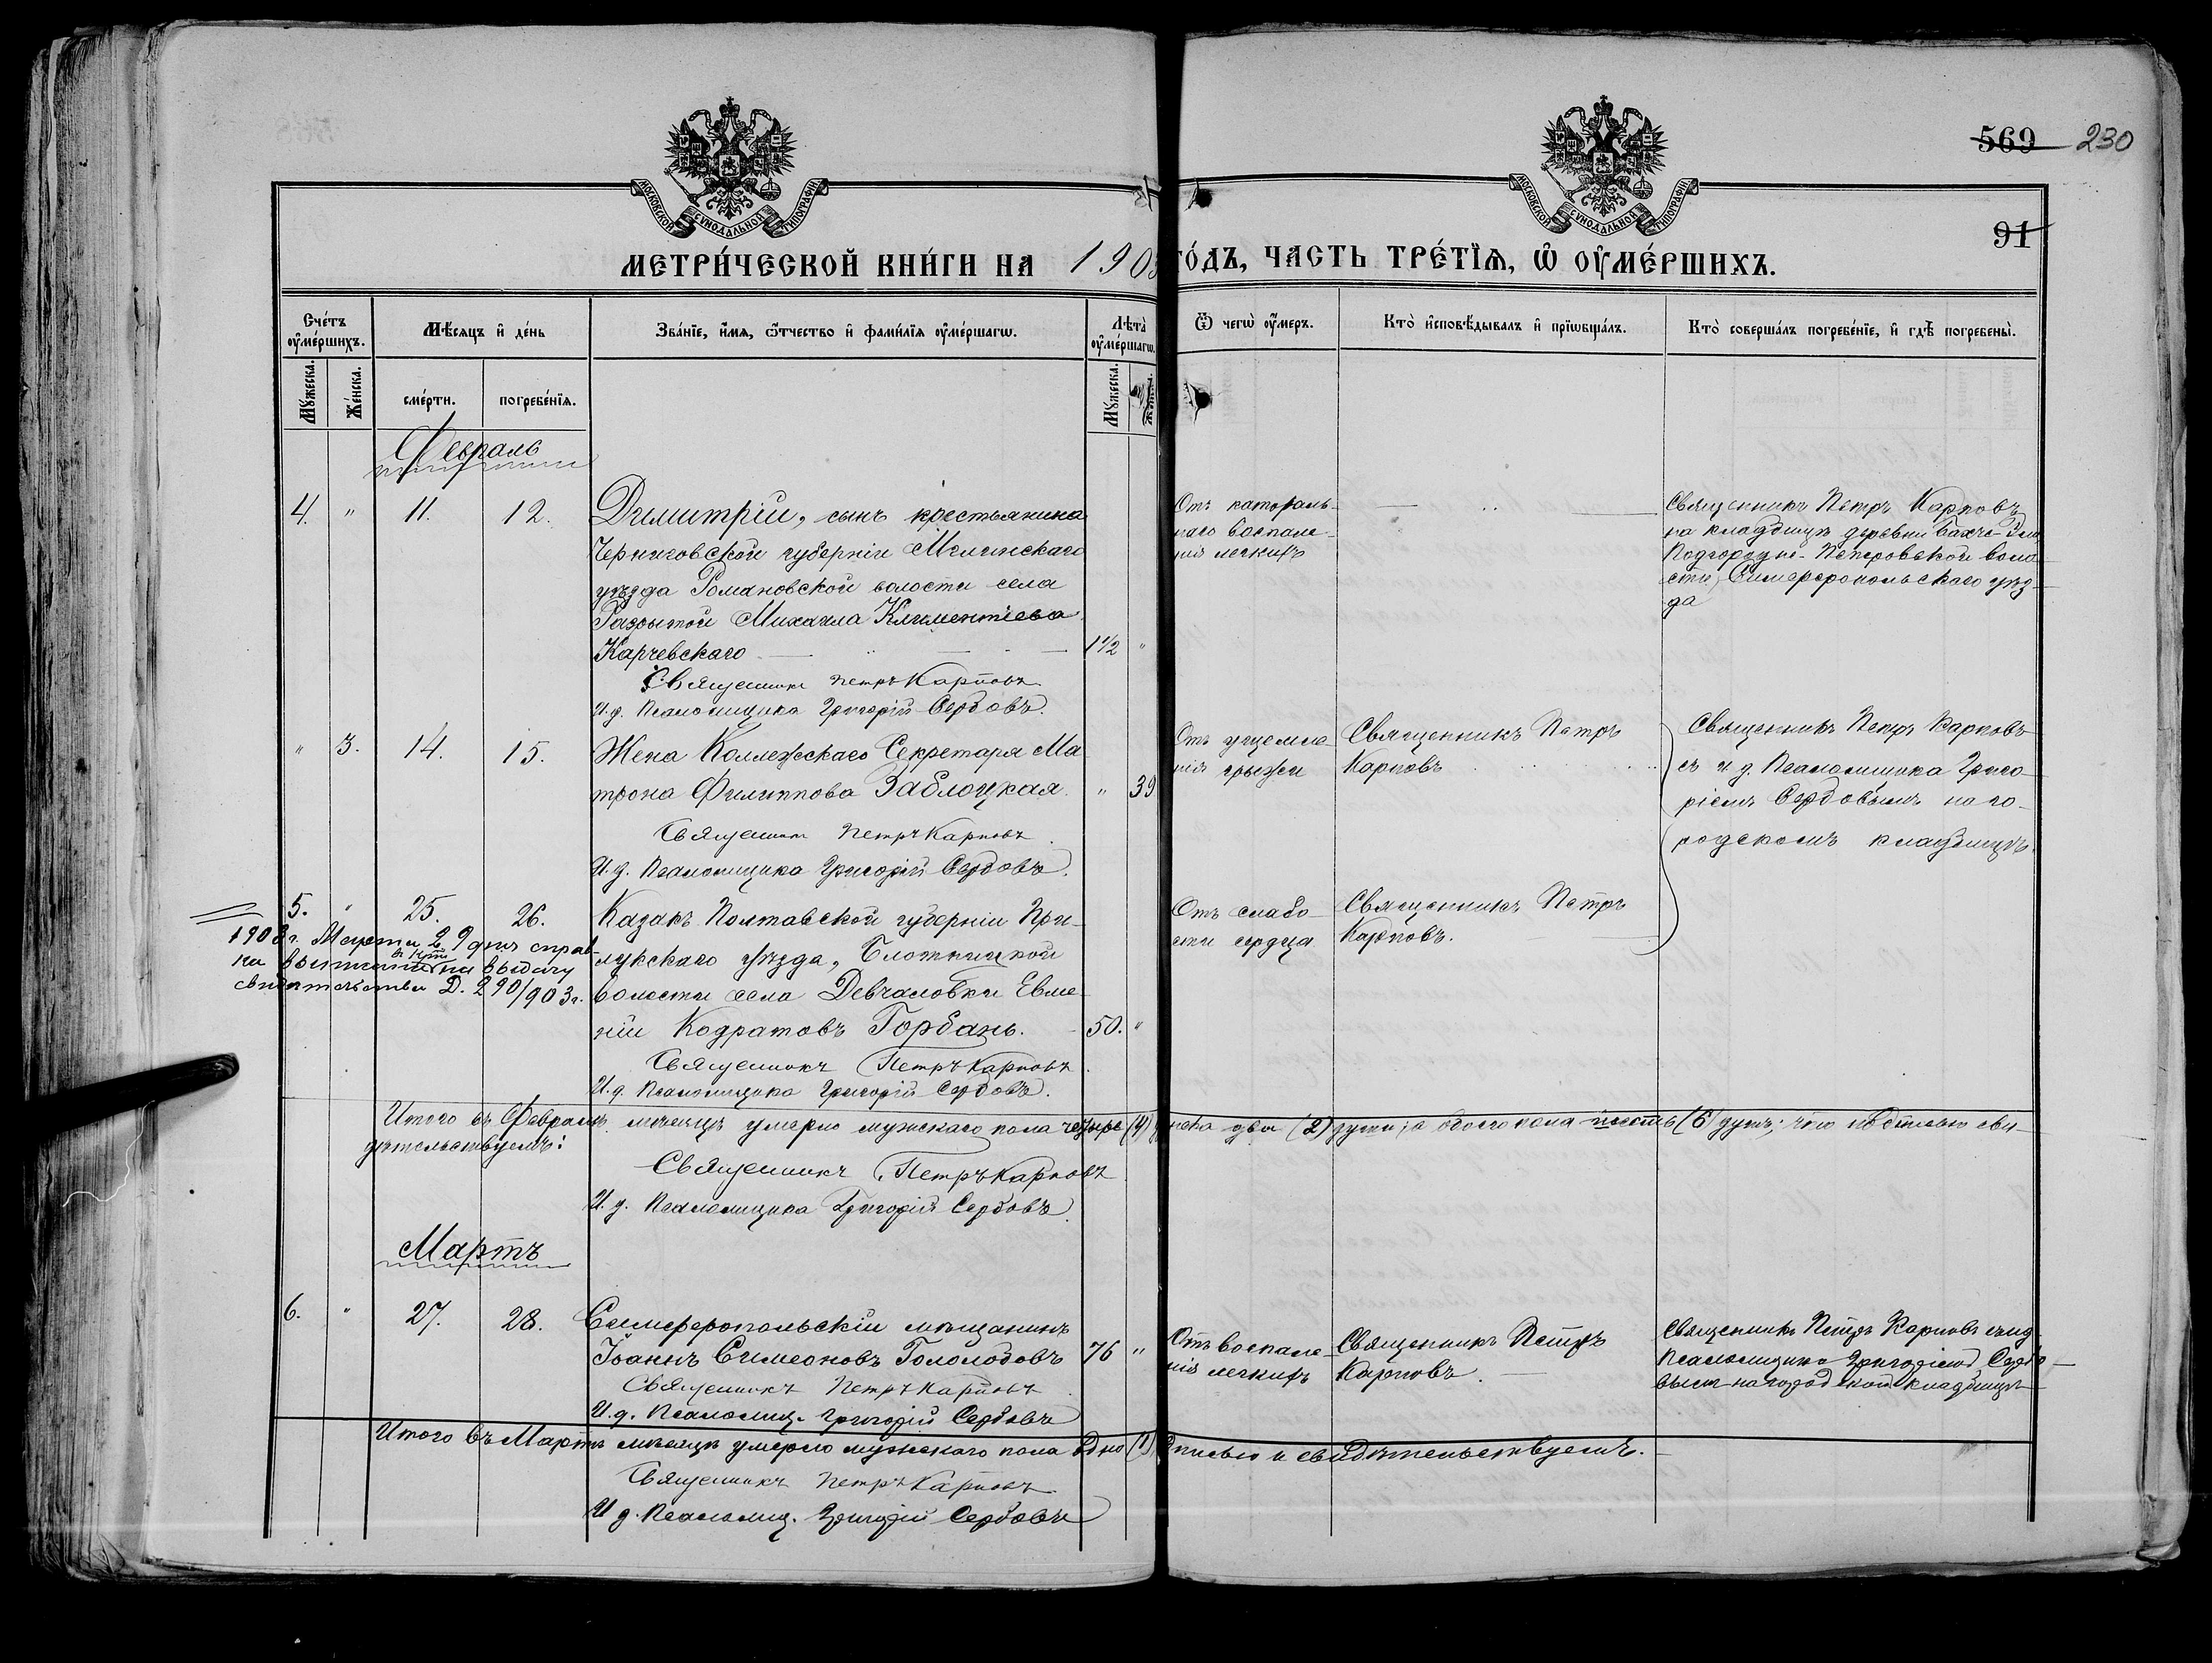 569 230
91
МОСКОВСКОЙ СѴНОДАЛЬНОЙ ТИПОГРАФІИ
МОСКОВСКОЙ СѴНОДАЛЬНОЙ ТИПОГРАФІИ
МЕТРИ́ЧЕСКОЙ КНИ́ГИ НА 1903 ГО́ДЪ, ЧАСТЬ ТРЕ́ТІЯ, Ѡ ОУМЕ́РШИХЪ.
Сче́тъ оуме́ршихъ.
Мѣ́сяцъ и де́нь
Зва́ніе, и́мя, ѻ́тчество и фами́лія оуме́ршагѡ.
Лѣта̀ оуме́ршагѡ.
Ѿ чегѡ̀ оу́меръ.
Кто̀ исповѣ́дывалъ и пріѡбща́лъ.
Кто̀ соверша́лъ погребе́ніе, и гдѣ̀ погребены̀.
Му́жеска.
Же́нска.
сме́рти.
погребе́нія.
Му́жеска.
Февраль
4. " 11. 12.
Димитрій, сынъ крестьянина
Черниговской губерніи Мглинскаго
уѣзда Романовской волости села
Разрытой Михаила Климентіева
Карчевскаго 1 1/2 "
Священникъ Петръ Карповъ
И. д. Псаломщика Григорій Сербовъ.
Отъ катораль-
наго воспале-
нія легкихъ
Священникъ Петръ Карповъ
на кладбищѣ деревни Бахчи-Эли,
Подгородне-Петровской воло
сти, Симферопольскаго уѣз-
да
" 3. 14. 15.
Жена Коллежскаго Секретаря Ма
трона Филиппова Заблоцкая. " 39
Священникъ Петръ Карповъ
И. д. Псаломщика Григорій Сербовъ.
Отъ ущемле
нія грыжи
Священникъ Петръ
Карповъ
Священникъ Петръ Карповъ
съ и д. Псаломщика Григо-
ріемъ Сербовымъ на го-
родскомъ кладбищѣ.
5. " 25. 26.
1903 г. Марта 29 дня справ-
ка на выдачу
свидѣтельства Д. 290/903 г.
Казакъ Полтавской губерніи При-
лукскаго уѣзда, Блотницкой
волости села Девчаловки Евме-
ній Кодратовъ Горбань. 50. "
Священникъ Петръ Карповъ
И. д. Псаломщика Григорій Сербовъ.
Отъ слабо-
сти сердца
Священникъ Петръ
Карповъ.
Итого въ Февралѣ мѣсяцѣ умерло мужскаго пола четыре (4) женска два (2) души; а обоего пола шесть (6) душъ; что подписью сви-
дѣтельствуемъ:
Священникъ Петръ Карповъ
И. д. Псаломщика Григорій Сербовъ
Мартъ
6. " 27. 28.
Симферопольскій мѣщанинъ
Іоаннъ Симеоновъ Гололобовъ 76 "
Священникъ Петръ Карповъ
И. д. Псаломщ. Григорій Сербовъ
Отъ воспале-
нія легкихъ
Священникъ Петръ
Карповъ.
Священникъ Петръ Карповъ съ и д
Псаломщика Григоріемъ Сербо-
вымъ на город кладбищѣ
Итого въ Мартѣ мѣсяцѣ умерло мужескаго пола одно (1) писью и свидѣтельствуемъ.
Священникъ Петръ Карповъ
И д. Псаломщ. Григорій Сербовъ